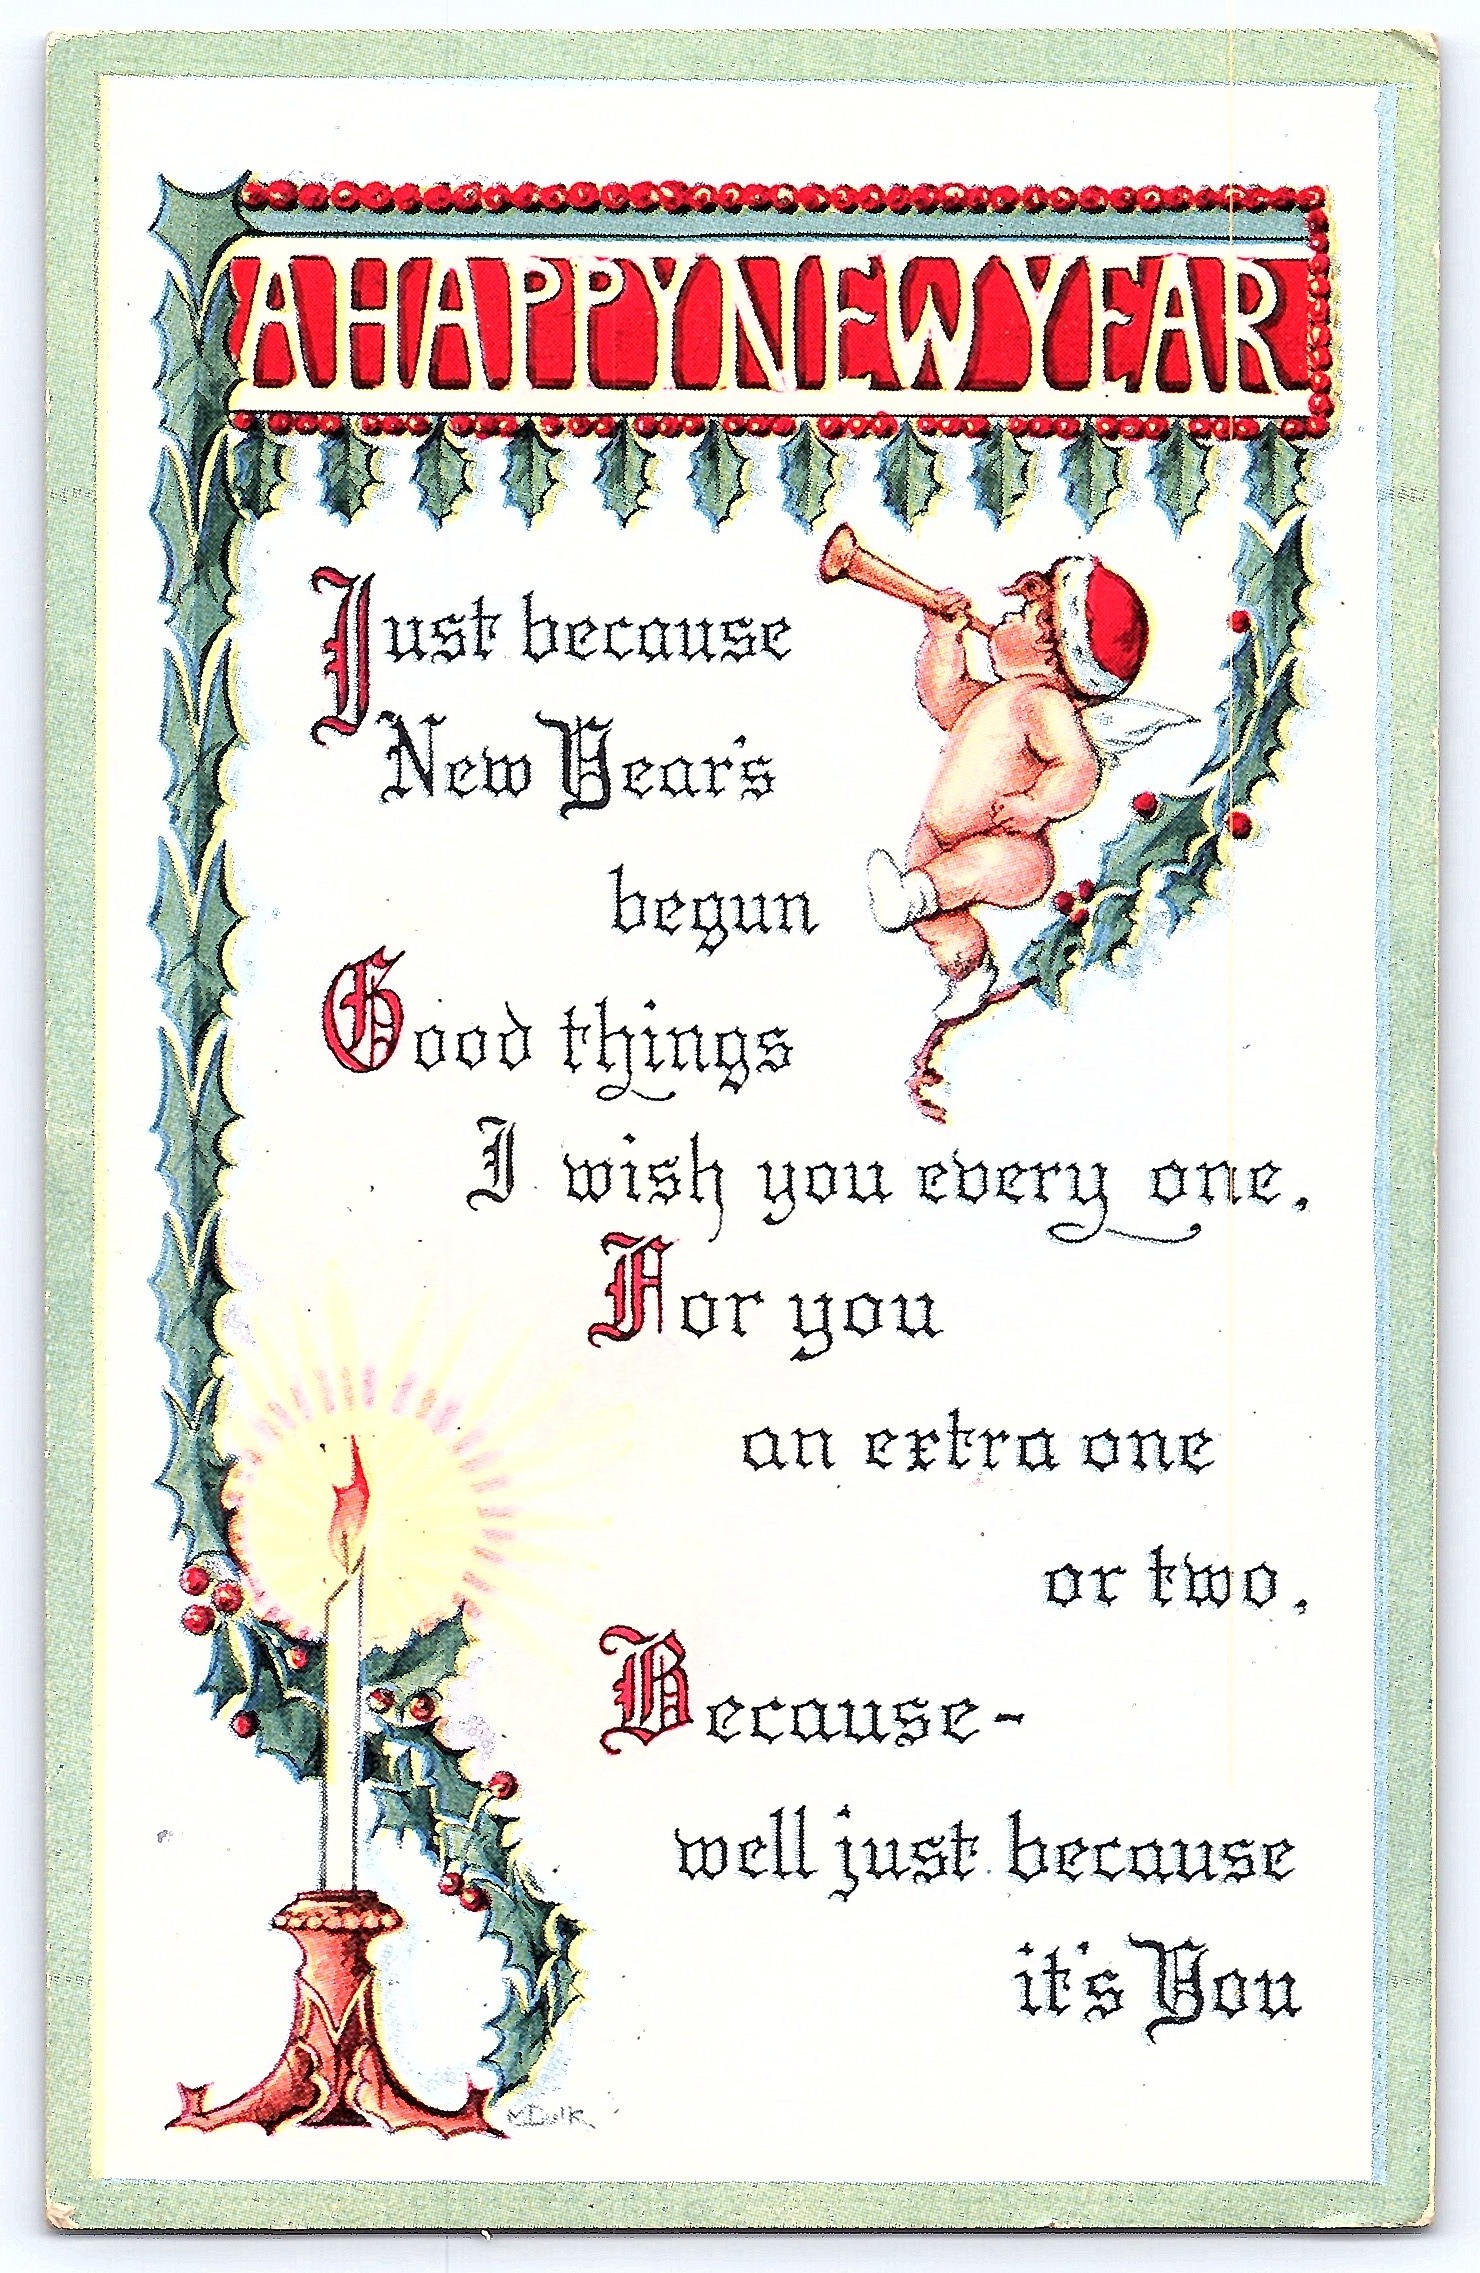 A HAPPY NEW YEAR
Just because
New Year's
begun
Good things
I wish you every one,
For you
an extra one
or two,
Because-
well just because
it's You
M Dulk